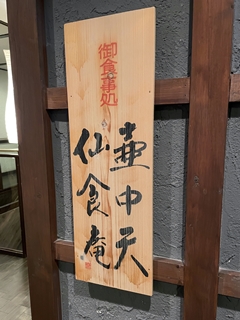 御食事処
壷中天
仙食庵